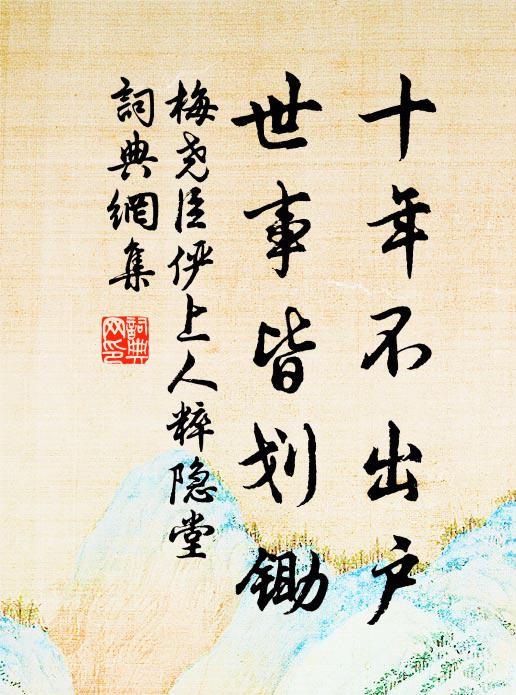 十年不出户
世事皆划锄
梅尧臣俨上人粹隐堂
詞典網集
詞典
网印